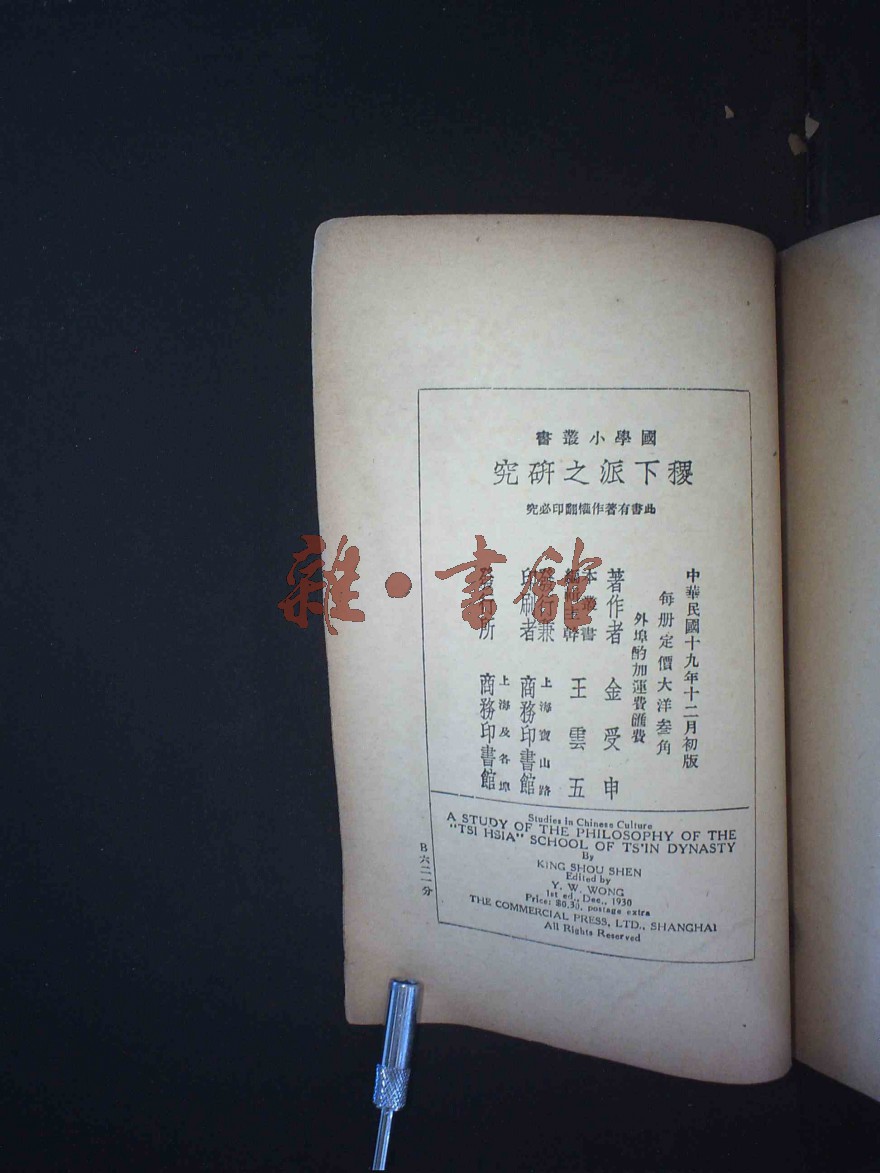 國學小叢書
稷下派之研究
此書有著作權翻印必究
中華民國十九年十二月初版
每册定價大洋叁角
外埠酌加運費匯費
著作者 金受申
本叢書編輯主幹 王雲五
發行兼印刷者 上海寶山路商務印書館
發行所 上海及各埠商務印書館
Studies in Chinese Culture
A STUDY OF THE PHILOSOPHY OF THE
"TSI HSIA" SCHOOL OF TS'IN DYNASTY
By
KING SHOU SHEN
Edited by
Y. W. WONG
1st ed., Dec., 1930
Price: $0.30, postage extra
THE COMMERCIAL PRESS, LTD., SHANGHAI
All Rights Reserved
B六二一分
雜·書館